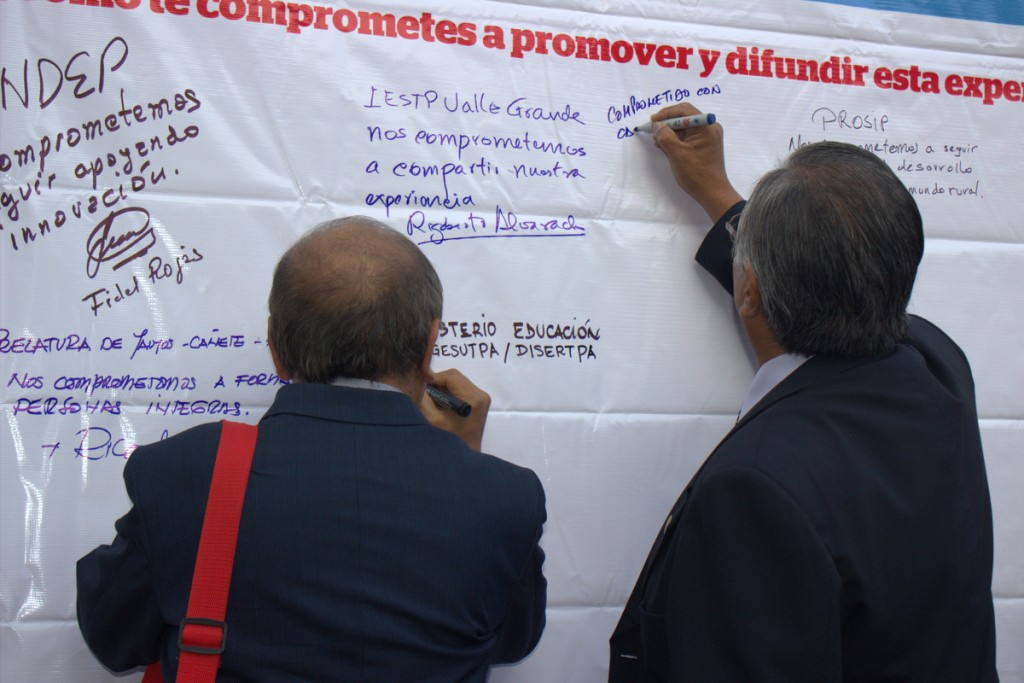 te comprometes a promover y difundir esta exper
NDEP
comprometemos
guir apoyando
innovación.
Fidel Rojas
IESTP Valle Grande
nos comprometemos
a compartir nuestra
experiencia
Rigoberto Alvarado
COMPROMETIDO CON
PROSIP
a seguir
desarrollo
mundo rural.
RELATURA DE YAUYOS - CAÑETE -
NOS COMPROMETEMOS A FORMA
PERSONAS INTEGRAS.
+ Rica
STERIO EDUCACIÓN
GESUTPA / DISERTPA